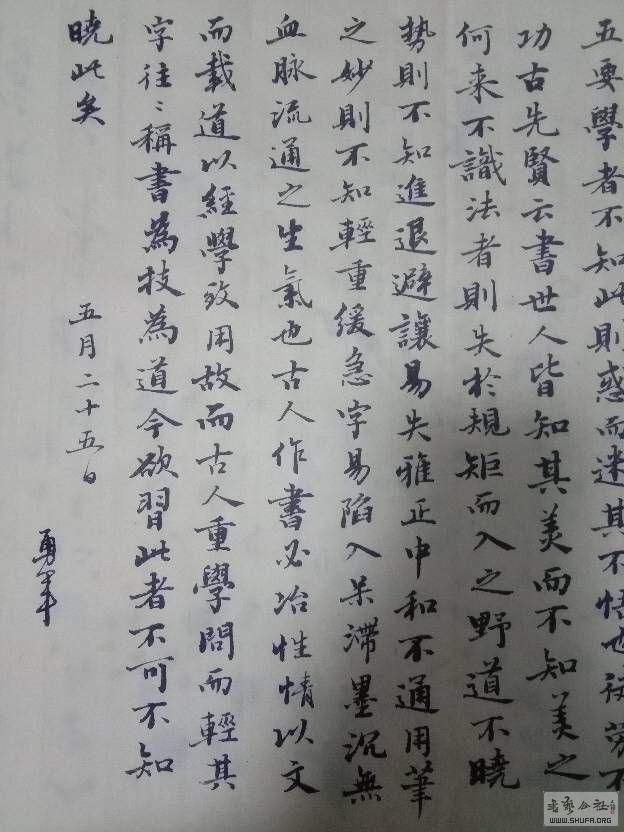 五要學者不知此則惑而迷其不悟也徒勞不
功古先賢云書世人皆知其美而不知美之
何来不識法者則失於規矩而入之野道不曉
勢則不知進退避讓易失雅正中和不通用筆
之妙則不知輕重緩急字易陷入呆滯墨沉無
血脉流通之生氣也古人作書必冶性情以文
而載道以經學致用故而古人重學問而輕其
字往〻稱書為技為道今欲習此者不可不知
曉此矣
五月二十五日
勇軍
書藝公社
WWW.SHUFA.ORG